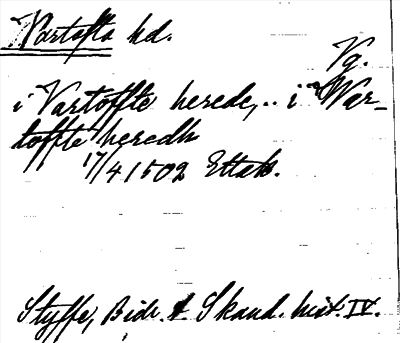 Vartofta hd.
Vg.
i Vartoffte herede,.. i War-
toffte heredh
17/4 1502 Ettak.
Styffe, Bidr. t Skand. hist. IV.